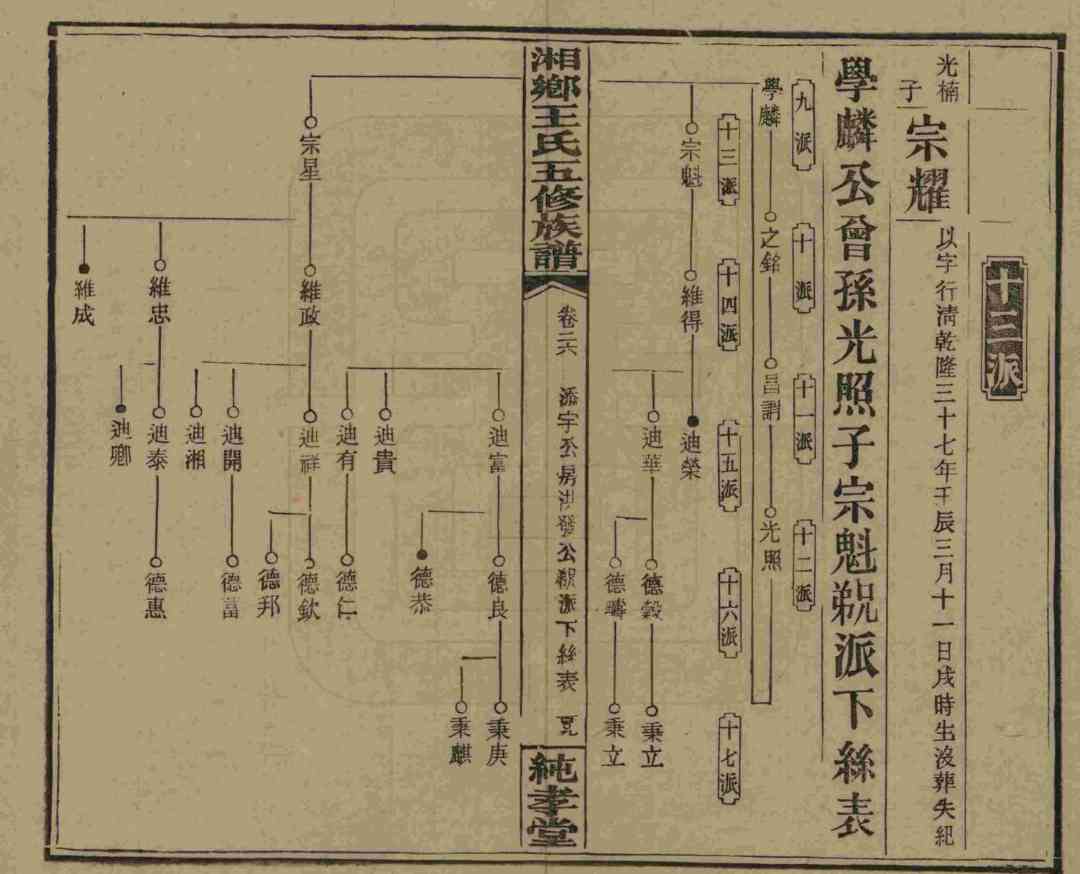 十三派
光楠子
宗耀
以字行清乾隆三十七年壬辰三月十一日戌時生沒葬失紀
學麟公曾孫光照子宗魁
派下絲表
九派
十派
十一派
十二派
學麟
之銘
昌謝
光照
十三派
十四派
十五派
十六派
十七派
宗魁
維得
迪榮
迪華
德毅
德疇
秉立
秉立
湘鄉王氏五修族譜
卷二六
添字公房洪發公
派下絲表
純孝堂
宗星
維政
維忠
維成
迪富
迪貴
迪有
迪祥
迪開
迪湘
迪泰
迪卿
德良
德恭
德仁
德欽
德邦
德富
德惠
秉庚
秉麒